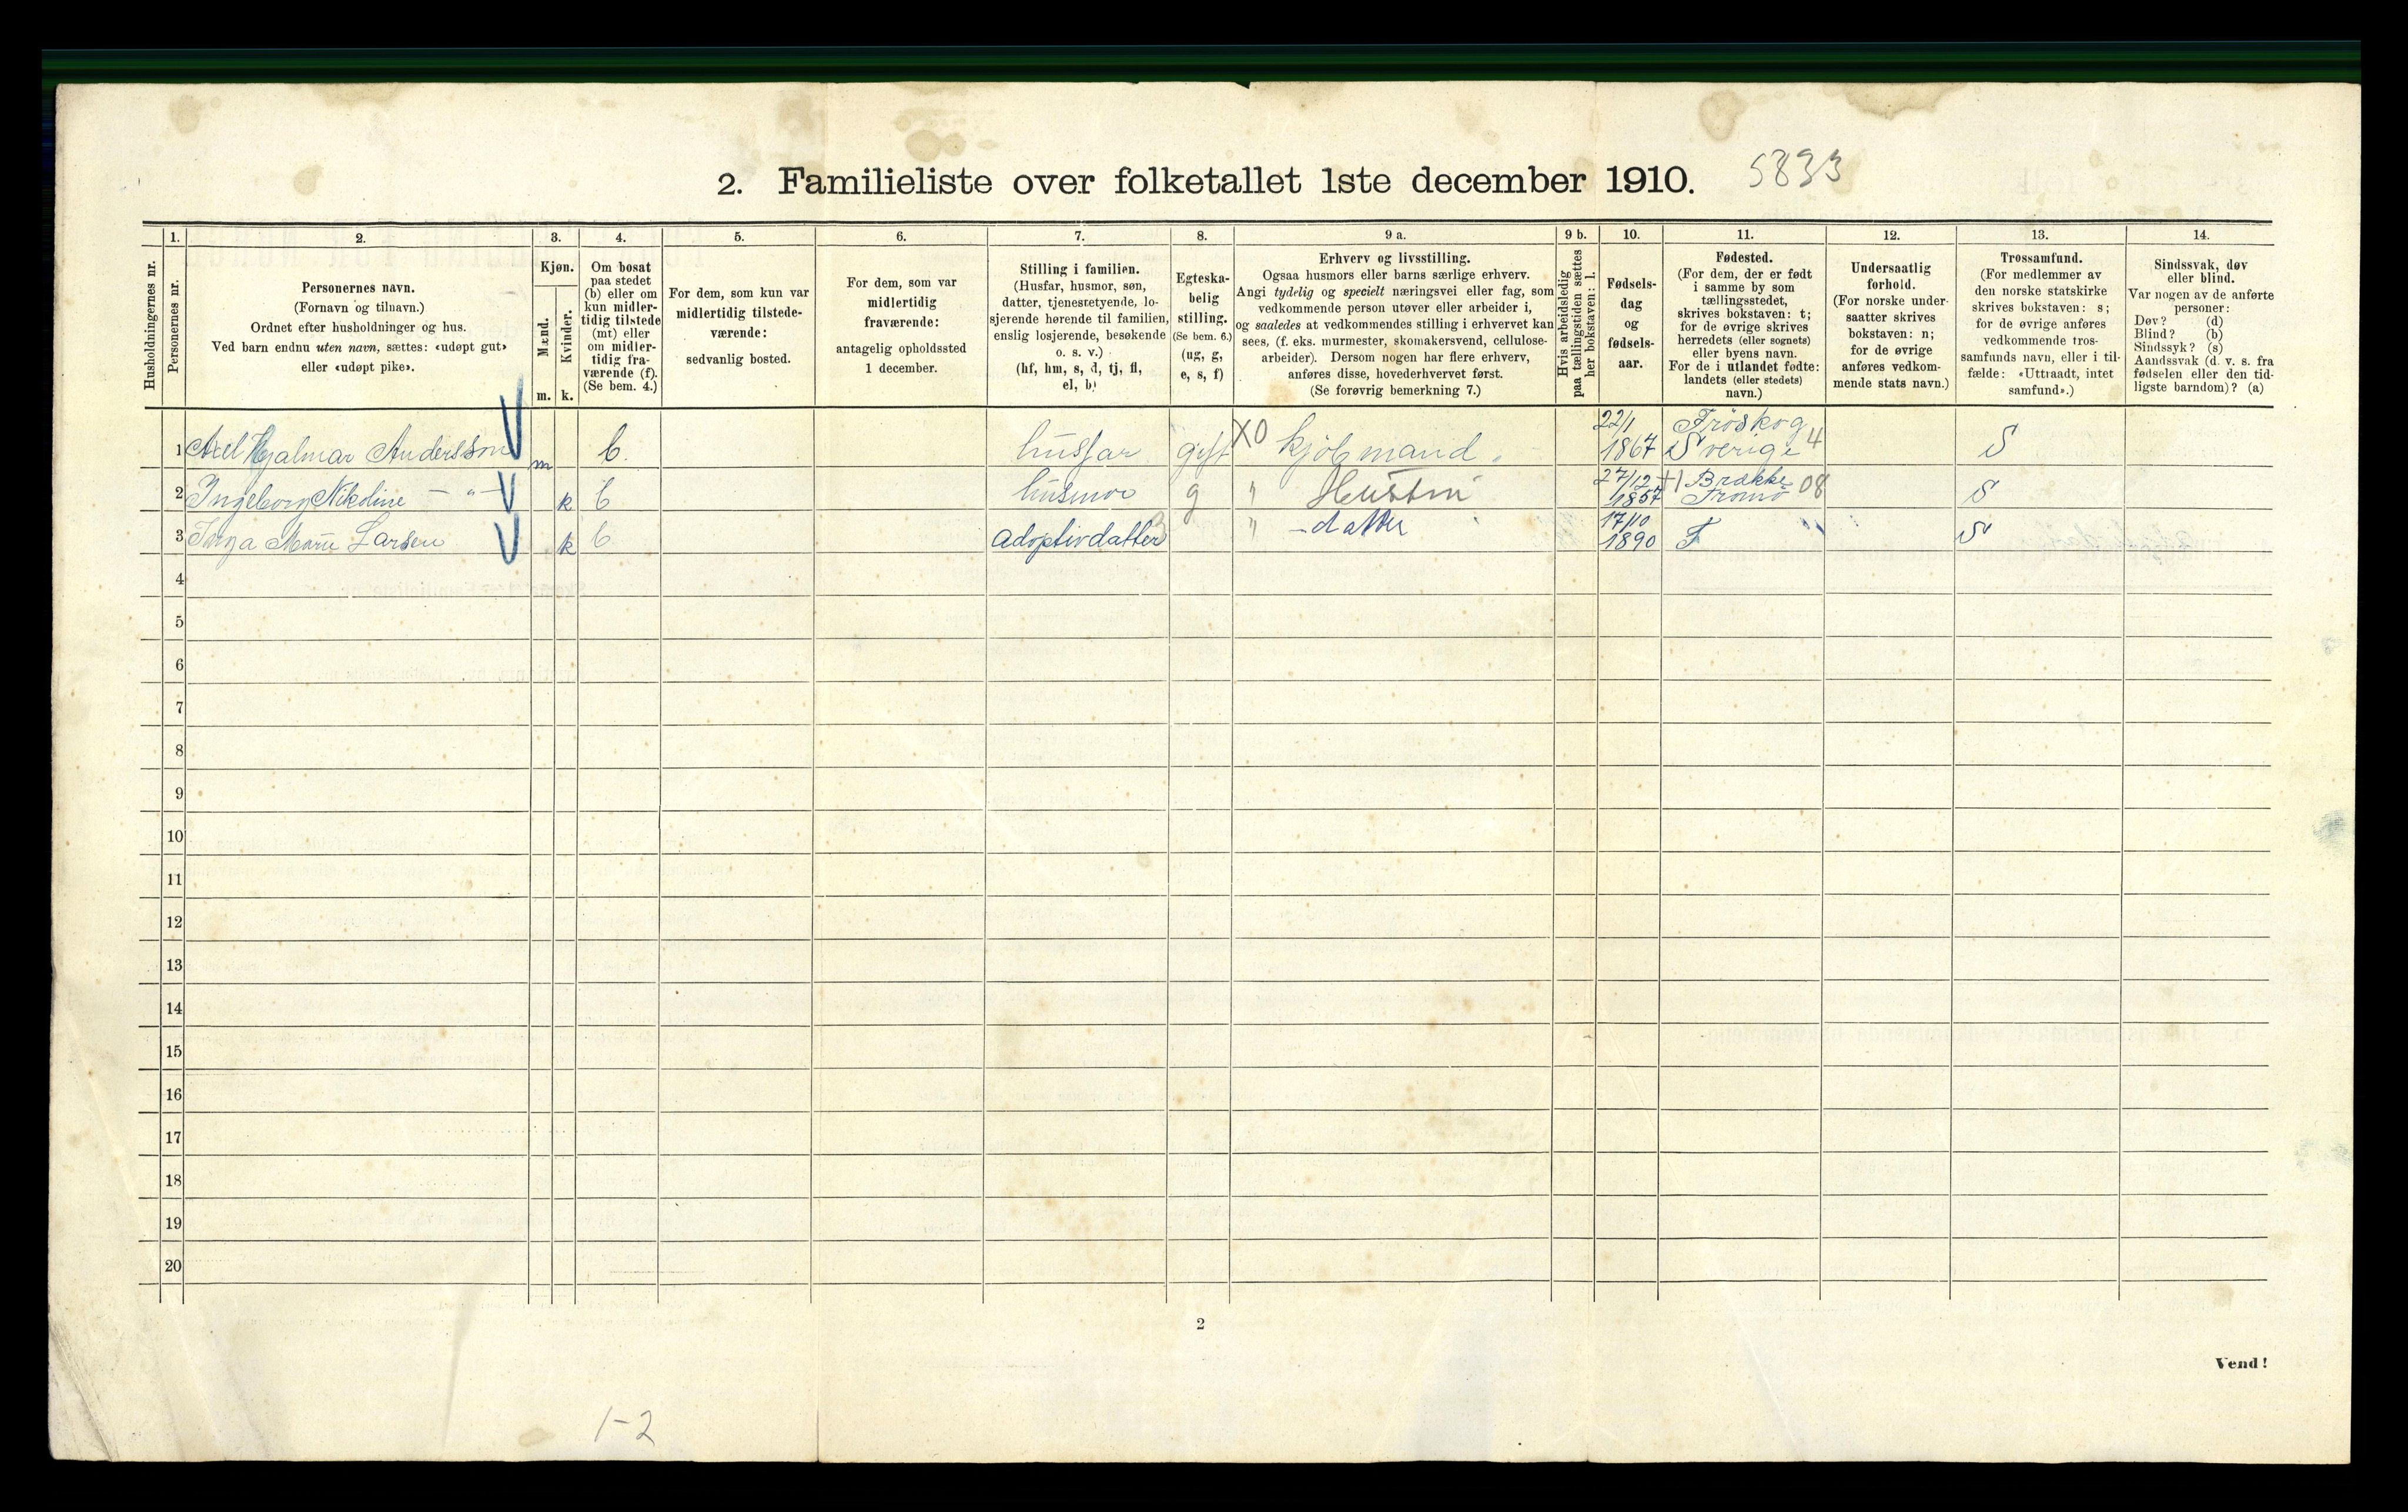 2. Familieliste over folketallet 1ste december 1910. 5833
Husholdningernes nr.
1.
Personernes nr.
2.
Personernes navn.
(Fornavn og tilnavn.)
Ordnet efter husholdninger og hus.
Ved barn endnu uten navn, sættes: «udøpt gut»
eller «udøpt pike».
3.
Kjøn.
Mænd.
Kvinder.
m. k.
4.
Om bosat
paa stedet
(b) eller om
kun midler-
tidig tilstede
(mt) eller
om midler-
tidig fra-
værende (f).
(Se bem. 4.)
5.
For dem, som kun var
midlertidig tilstede-
værende:
sedvanlig bosted.
6.
For dem, som var
midlertidig
fraværende:
antagelig opholdssted
1 december.
7.
Stilling i familien.
(Husfar, husmor, søn,
datter, tjenestetyende, lo-
sjerende hørende til familien,
enslig losjerende, besøkende
o. s. v.)
(hf, hm, s, d, tj, fl,
el, b)
8.
Egteska-
belig
stilling.
(Se bem. 6.)
(ug, g,
e, s, f)
9 a.
Erhverv og livsstilling.
Ogsaa husmors eller barns særlige erhverv.
Angi tydelig og specielt næringsvei eller fag, som
vedkommende person utøver eller arbeider i,
og saaledes at vedkommendes stilling i erhvervet kan
sees, (f. eks. murmester, skomakersvend, cellulose-
arbeider). Dersom nogen har flere erhverv,
anføres disse, hovederhvervet først.
(Se forøvrig bemerkning 7.)
9 b.
Hvis arbeidsledig
paa tællingstiden sættes
her bokstaven: l.
10.
Fødsels-
dag
og
fødsels-
aar.
11.
Fødested.
(For dem, der er født
i samme by som
tællingsstedet,
skrives bokstaven: t;
for de øvrige skrives
herredets (eller sognets)
eller byens navn.
For de i utlandet fødte:
landets (eller stedets)
navn.)
12.
Undersaatlig
forhold.
(For norske under-
saatter skrives
bokstaven: n;
for de øvrige
anføres vedkom-
mende stats navn.)
13.
Trossamfund.
(For medlemmer av
den norske statskirke
skrives bokstaven: s;
for de øvrige anføres
vedkommende tros-
samfunds navn, eller i til-
fælde: «Uttraadt, intet
samfund».)
14.
Sindssvak, døv
eller blind.
Var nogen av de anførte
personer:
Døv? (d)
Blind? (b)
Sindssyk? (s)
Aandssvak (d. v. s. fra
fødselen eller den tid-
ligste barndom)? (a)
1 Axel Hjalmar Andersson m b. husfar gift X0 kjöbmand. 22/1 1867 Fröskog Sverige 4 S
2 Ingeborg Nikoline — " — k b husmor g " Hustru 27/12 1857 Brække Tromö 08 S
3 Inga Marie Larsen k b adoptivdatter " -datter 17/10 1890 T S
4
5
6
7
8
9
10
11
12
13
14
15
16
17
18
19
20
2
Vend!
1-2